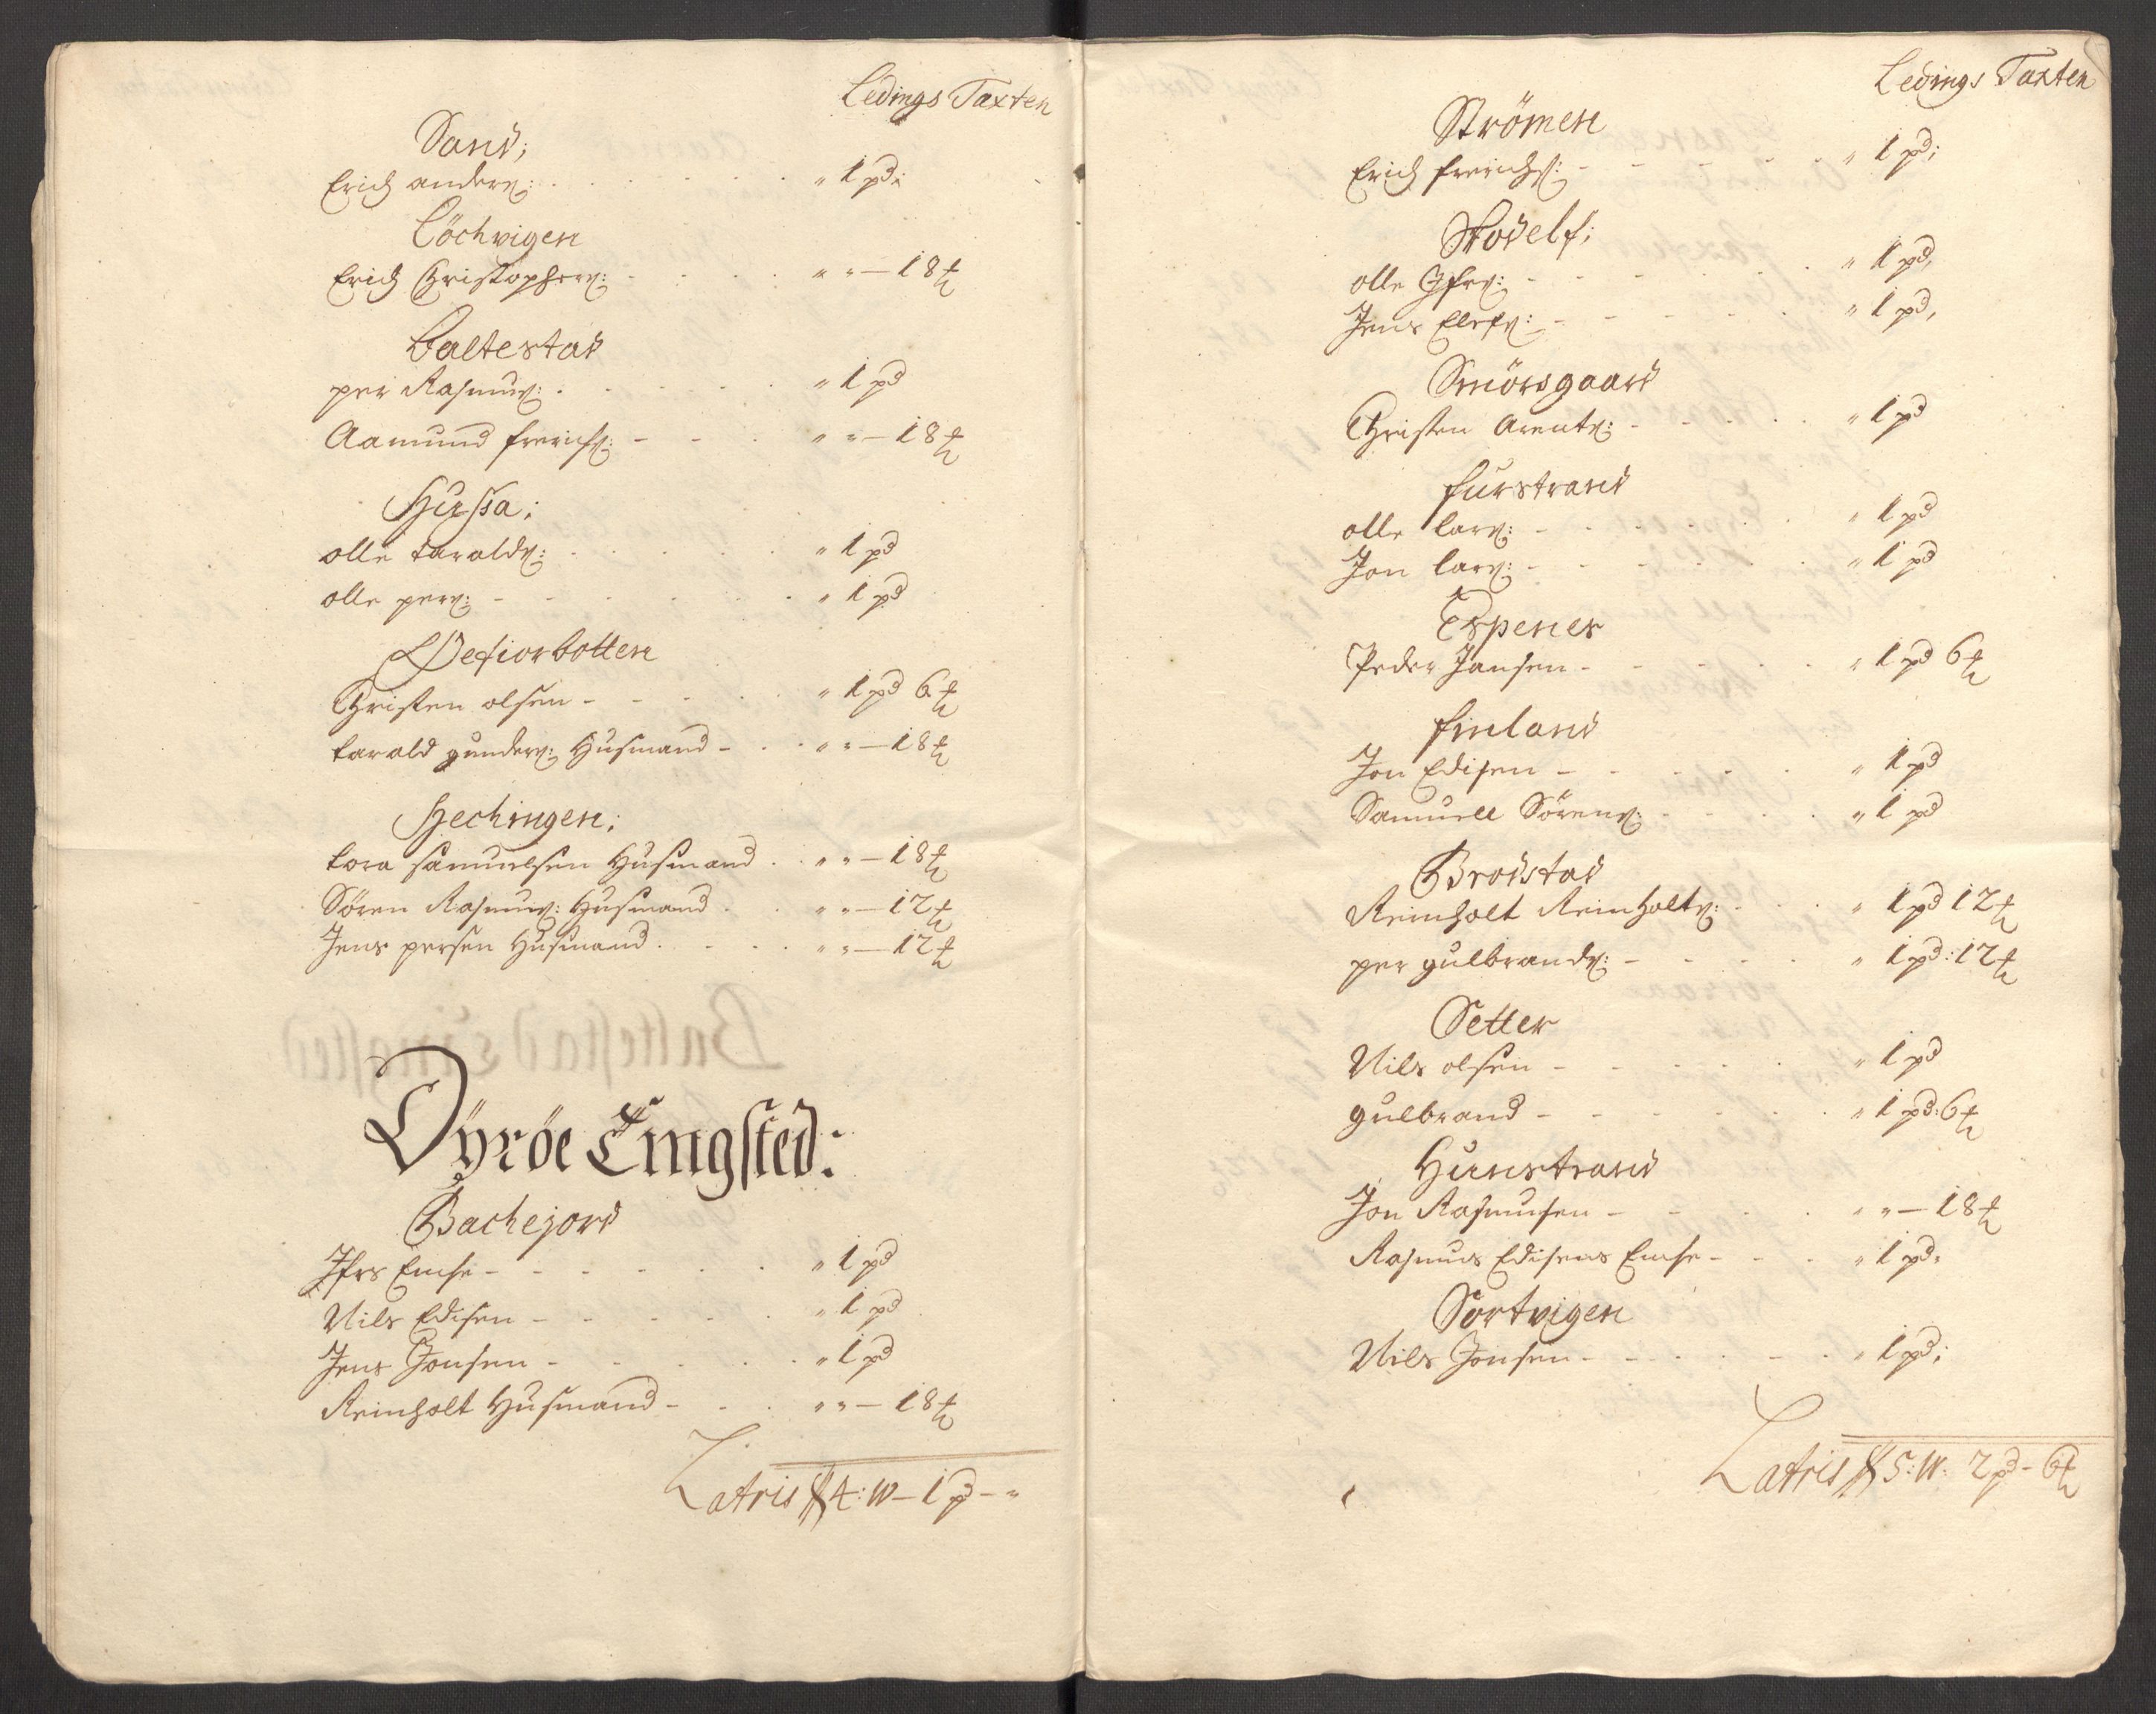 Ledings Taxten
Sand;
Erich anders: " 1 pd:
Löchvigen
Erich Christophers: " " – 18 ℔
Baltestad
per Rasmus: " 1 pd
Aamund frerichs: " " – 18 ℔
Hussa;
olle taralds: " 1 pd
olle pers: " 1 pd
Wefiorbotten
Christen olsen - " 1 pd 6 ℔
tarald gunders: Husmand - " " – 18 ℔
Hechingen;
tora samuelsen Husmand " " – 18 ℔
Sören Rasmus: Husmand " " – 12 ℔
Jens persen Husmand " " – 12 ℔
Dÿröe Tingsted:
Bachejord
Ifrs Enche - " 1 pd
Nils Edisen - " 1 pd
Jens Jonsen - " 1 pd
Reinholt Husmand - " " – 18 ℔
Latris 4: W – 1 pd – "
Ledings Taxten
Strömen
Erich frerichs: - " 1 pd;
Stodelf;
olle Ifrs: - " 1 pd,
Jens Elefs: - " 1 pd,
Smörsgaard
Christen Arents: - " 1 pd
furstrand
olle lars: - " 1 pd
Jon lars: - " 1 pd
Espenes
Peder Jansen - " 1 pd 6 ℔
finland
Jon Edisen - " 1 pd
Samuell Sörens: - " 1 pd
Brodstad
Reinholt Reinholts: " 1 pd 12 ℔
per gulbrands: - " 1 pd: 12 ℔
Setter
Nils olsen - " 1 pd
gulbrand - " 1 pd: 6 ℔
Hunstrand
Jon Rasmusen - " " – 18 ℔
Rasmus Edisens Enche - " 1 pd.
Sortvigen
Nils Jonsen - " 1 pd;
Latris 5: W: 2 pd – 6 ℔